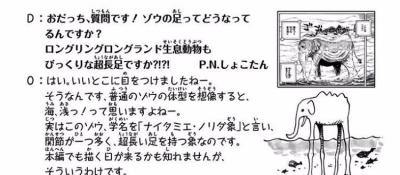 D：おだっち、質問です！ゾウの足ってどうなって
るんですか？
ロングリングロングランド生息動物も
びっくりな超長足ですか?!?! P.N.しょこたん
O：はい。いいとこに目をつけましたねー。
そうなんです、普通のゾウの体型を想像すると、
海、浅っ！って思いますよねー。
実はこのゾウ、学名を「ナイタミエ・ノリダ象」と言い、
関節が一つ多く、超長い足を持つ象なのです。
本編でも描く日が来るかも知れませんが、
そういうわけです。